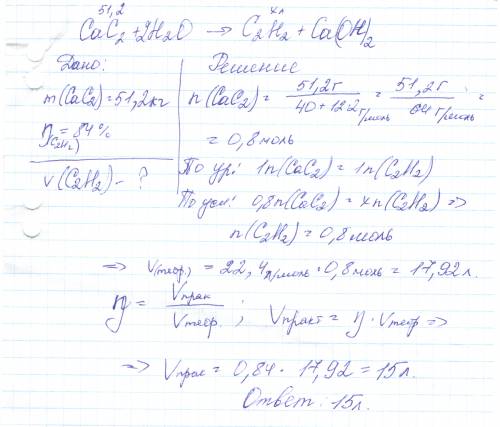 51,2 xл
CaC2 + 2H2O → C2H2 + Ca(OH)2
Дано:
m(CaC2) = 51,2 кг
η(C2H2) = 84%
V(C2H2) - ?
Решение
n(CaC2) = 51,2г / 40+12·2 г/моль = 51,2г / 64 г/моль =
= 0,8 моль
По ур: 1n(CaC2) = 1n(C2H2)
По усл: 0,8n(CaC2) = xn(C2H2) =>
n(C2H2) = 0,8 моль
=> V(теор.) = 22,4 л/моль · 0,8 моль = 17,92 л.
η = Vпрак / Vтеор. ; Vпракт = η · Vтеор =>
=> Vпрак = 0,84 · 17,92 = 15 л.
Ответ: 15 л.